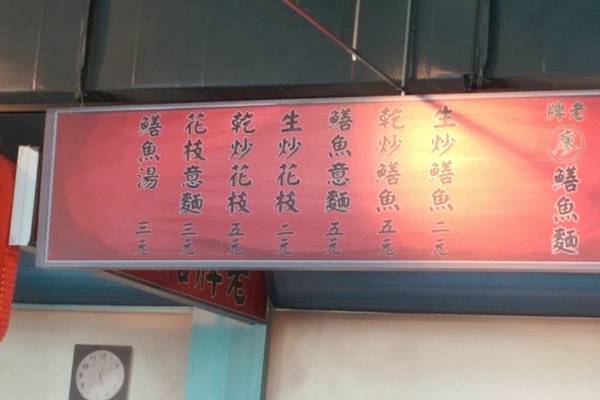 老牌
廖
鱔魚麵
生炒鱔魚 二元
乾炒鱔魚 五元
鱔魚意麵 五元
生炒花枝 二元
乾炒花枝 五元
花枝意麵 三元
鱔魚湯 三元
老牌